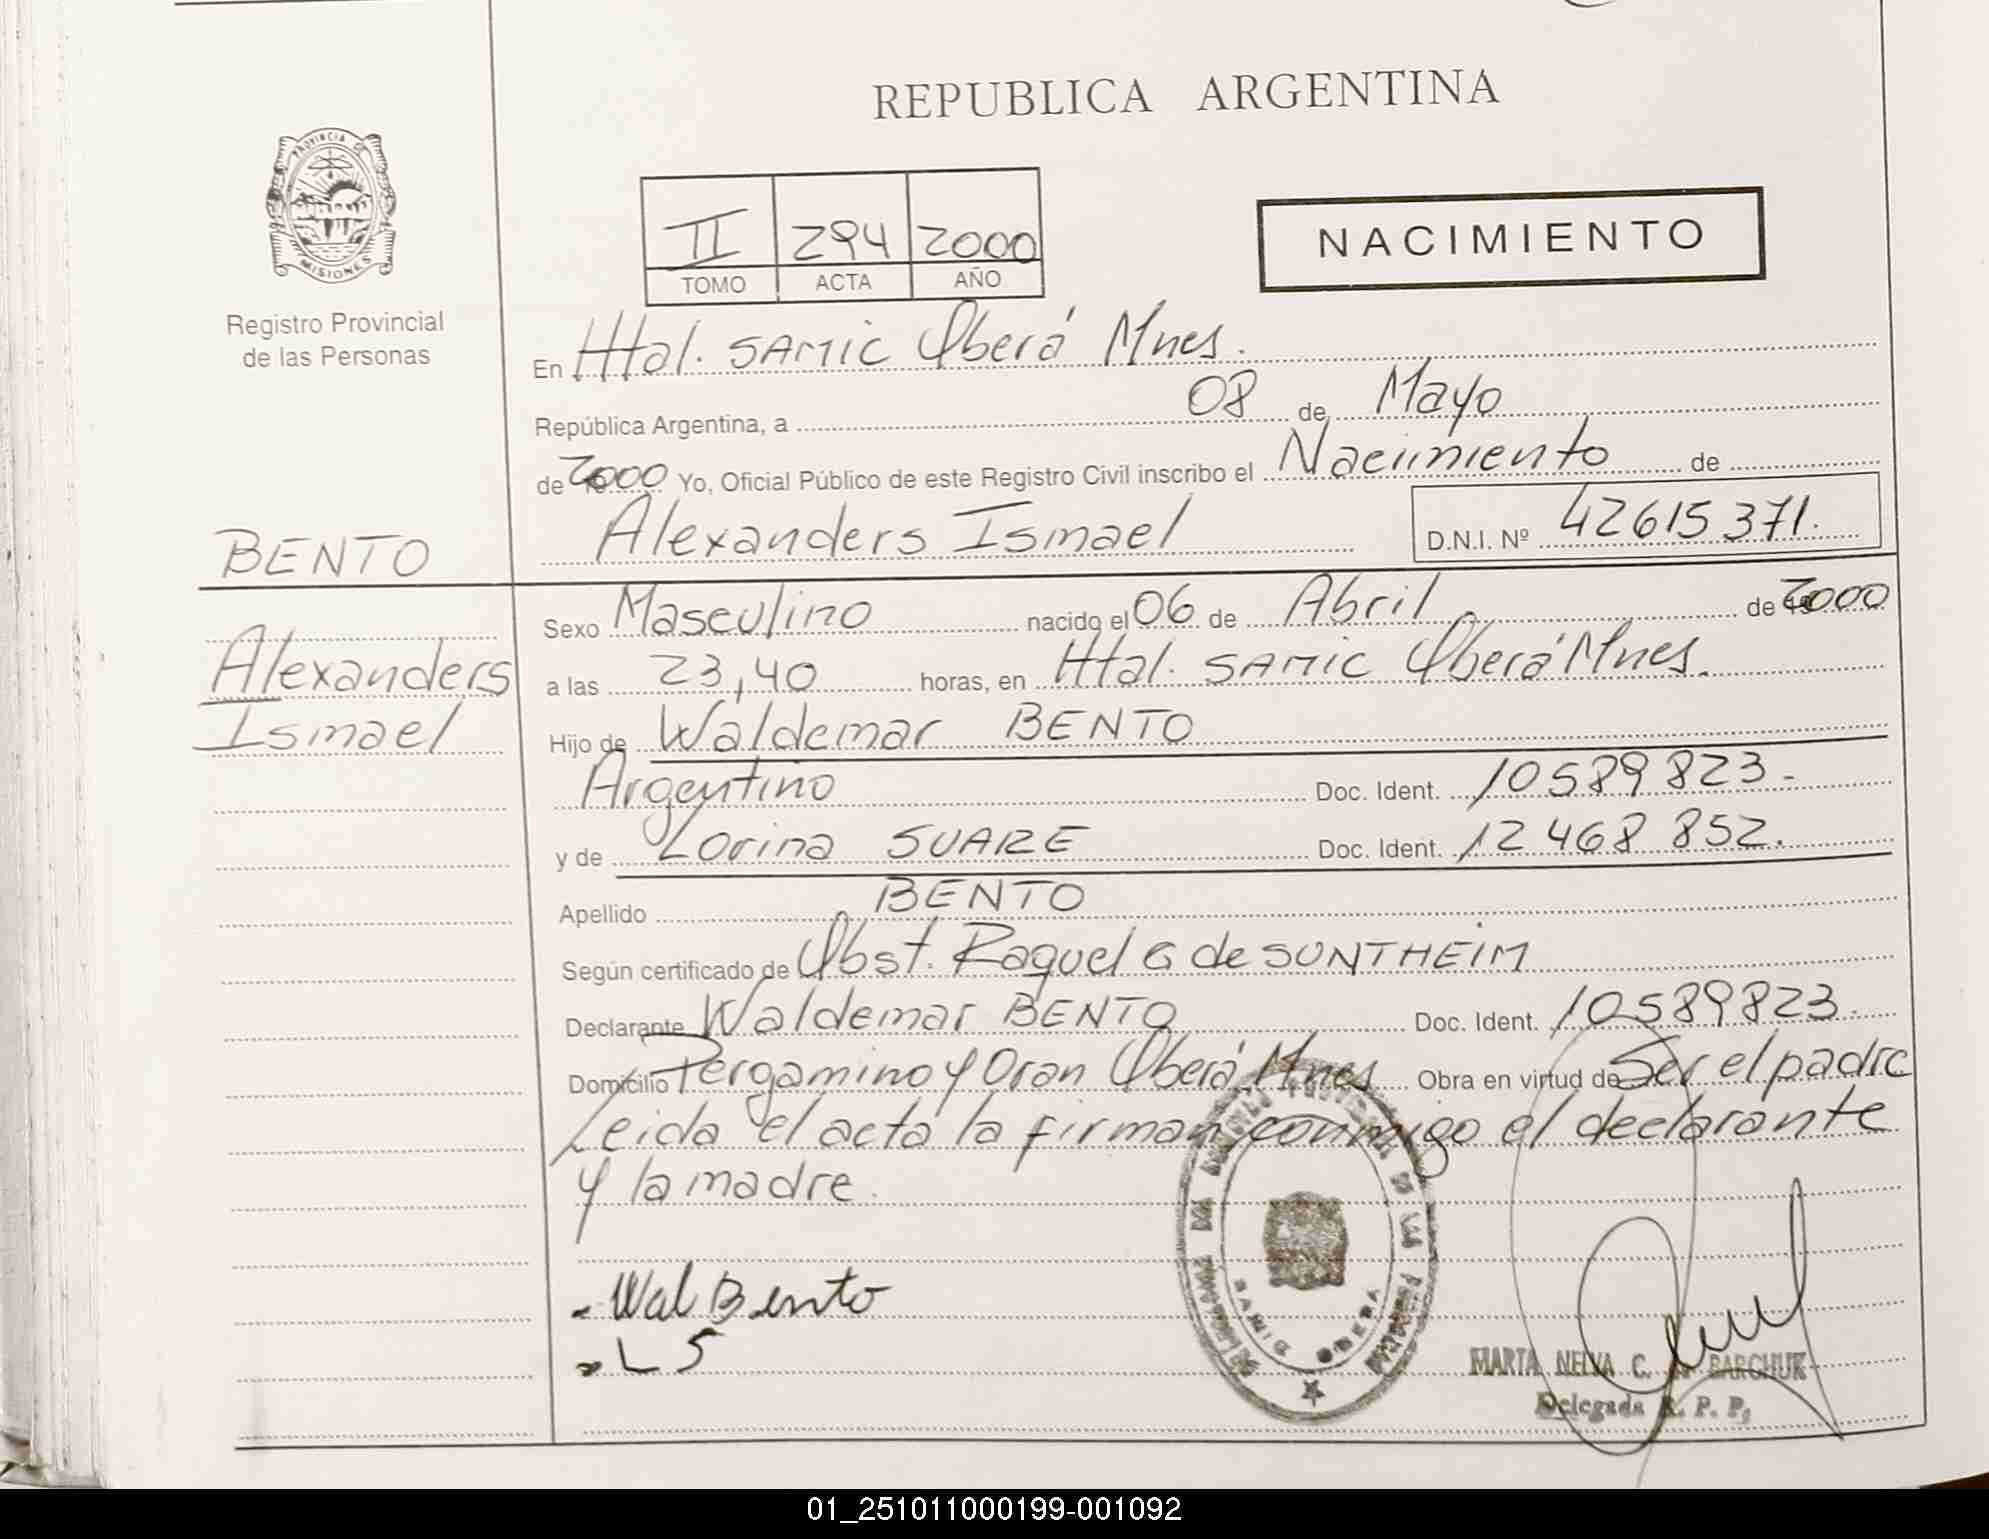 REPUBLICA ARGENTINA
PROVINCIA DE
MISIONES
Registro Provincial
de las Personas
II 294 2000
TOMO ACTA AÑO
NACIMIENTO
En Htal. SAMIC Oberá Mnes.
República Argentina, a 08 de Mayo
de 2000 Yo, Oficial Público de este Registro Civil inscribo el Nacimiento de
Alexanders Ismael D.N.I. Nº 42615371.
BENTO
Alexanders
Ismael
Sexo Masculino nacido el 06 de Abril de 2000
a las 23,40 horas, en Htal. SAMIC Oberá Mnes.
Hijo de Waldemar BENTO
Argentino Doc. Ident. 10589823.-
y de Lorina SUARE Doc. Ident. 12468852.
Apellido BENTO
Según certificado de Obst. Raquel G de SUNTHEIM
Declarante Waldemar BENTO Doc. Ident. 10589823.
Domicilio Pergamino y Oran Oberá Mnes Obra en virtud de Ser el padre
Leida el acta la firman conmigo el declarante
y la madre.
Wal Bento
L S
SAMIC OBERA
MARTA NELVA C. BARCHUK
Delegada R. P. P.
01_251011000199-001092